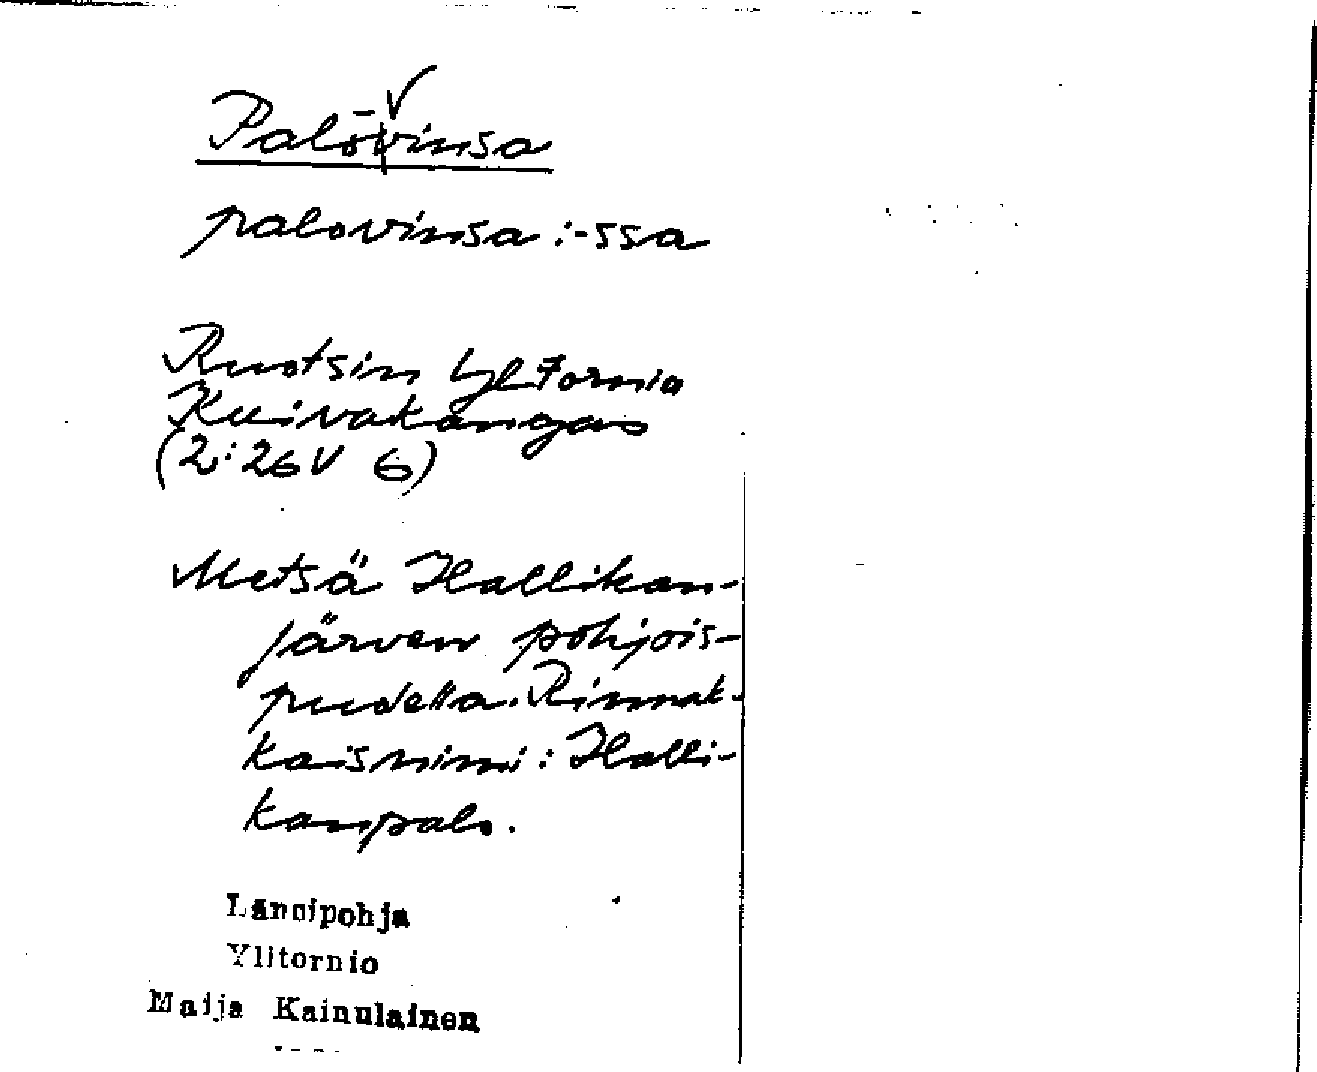 Palovinsa
palovinsa :-ssa
Ruotsin Ylitornio
Kuivakangas
(2:26V 6)
Metsä Hallikan-
järven pohjois-
puolella. Rinnak-
kaisnimi: Halli-
kanpalo.
Länsipohja
Ylitornio
Maija Kainulainen